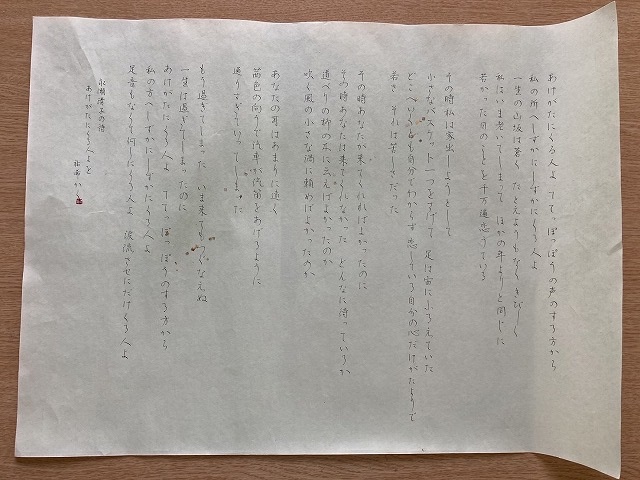 あけがたにくる人よ ててっぽっぽうの声のする方から
私の所へしずかにしずかにくる人よ
一生の山坂は蒼く たとえようもなくきびしく
私はいま老いてしまって ほかの年よりと同じに
若かった日のことを千万遍恋うている
その時私は家出しようとして
小さなバスケット一つをさげて 足は宙にふるえていた
どこへいくとも自分でわからず 恋している自分の心だけがたよりで
若さ それは苦しさだった
その時あなたが来てくれればよかったのに
その時あなたは来てくれなかった どんなに待っているか
道べりの柳の木に云えばよかったのか
吹く風の小さな渦に頼めばよかったのか
あなたの耳はあまりに遠く
茜色の向うで汽車が汽笛をあげるように
通りすぎていってしまった
もう過ぎてしまった いま来てもつぐなえぬ
一生は過ぎてしまったのに
あけがたにくる人よ ててっぽっぽうのする方から
私の方へしずかにしずかにくる人よ
足音もなくて何しにくる人よ 涙流させにだけくる人よ
永瀬清子の詩
あけがたにくる人よを
かく